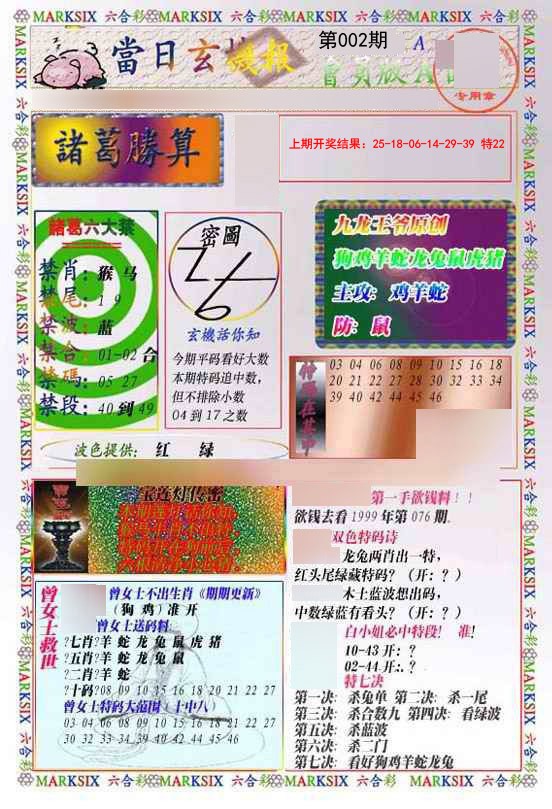 MARKSIX 六合彩 MARKSIX 六合彩 MARKSIX 六合彩 MARKSIX 六合彩
當日玄機報
第002期
A
會員版A
专用章
諸葛勝算
上期开奖结果：25-18-06-14-29-39 特22
諸葛六大禁
禁肖：猴 马
禁尾：1 9
禁波：蓝
禁合：01-02 合
禁碼：05 27
禁段：40 到 49
密圖
玄機話你知
今期平码看好大数
本期特码追中数，
但不排除小数
04 到 17 之数
九龙王爷原创
狗鸡羊蛇龙兔鼠虎猪
主攻：鸡羊蛇
防：鼠
03 04 06 08 09 10 15 16 18
20 21 22 27 28 30 32 33 34
39 40 42 44 45 46
波色提供：红 绿
宝莲灯传密
第一手欲钱料！！
欲钱去看 1999 年第 076 期.
双色特码诗
龙兔两肖出一特，
红头尾绿藏特码？（开：？）
木土蓝波想出码，
中数绿蓝有看头？（开：？）
白小姐必中特段！ 准！
10-43 开：？
02-44 开：.？
特七决
第一决：杀兔单 第二决：杀一尾
第三决：杀合数九 第四决：看绿波
第五决：杀蓝波
第六决：杀二门
第七决：看好狗鸡羊蛇龙兔
曾女士救世
曾女士不出生肖《期期更新》
（狗 鸡）准 开
曾女士送码料
?七肖?羊 蛇 龙 兔 鼠 虎 猪
?五肖?羊 蛇 龙 兔 鼠
?二肖?羊 蛇
?十码?08 09 10 15 16 18 20 21 22 27
曾女士特码大范围（十中八）
03 04 06 08 09 10 15 16 18 21 22 27
30 32 33 34 39 40 42 44 45 46
MARKSIX 六合彩 MARKSIX 六合彩 MARKSIX 六合彩 MARKSIX 六合彩